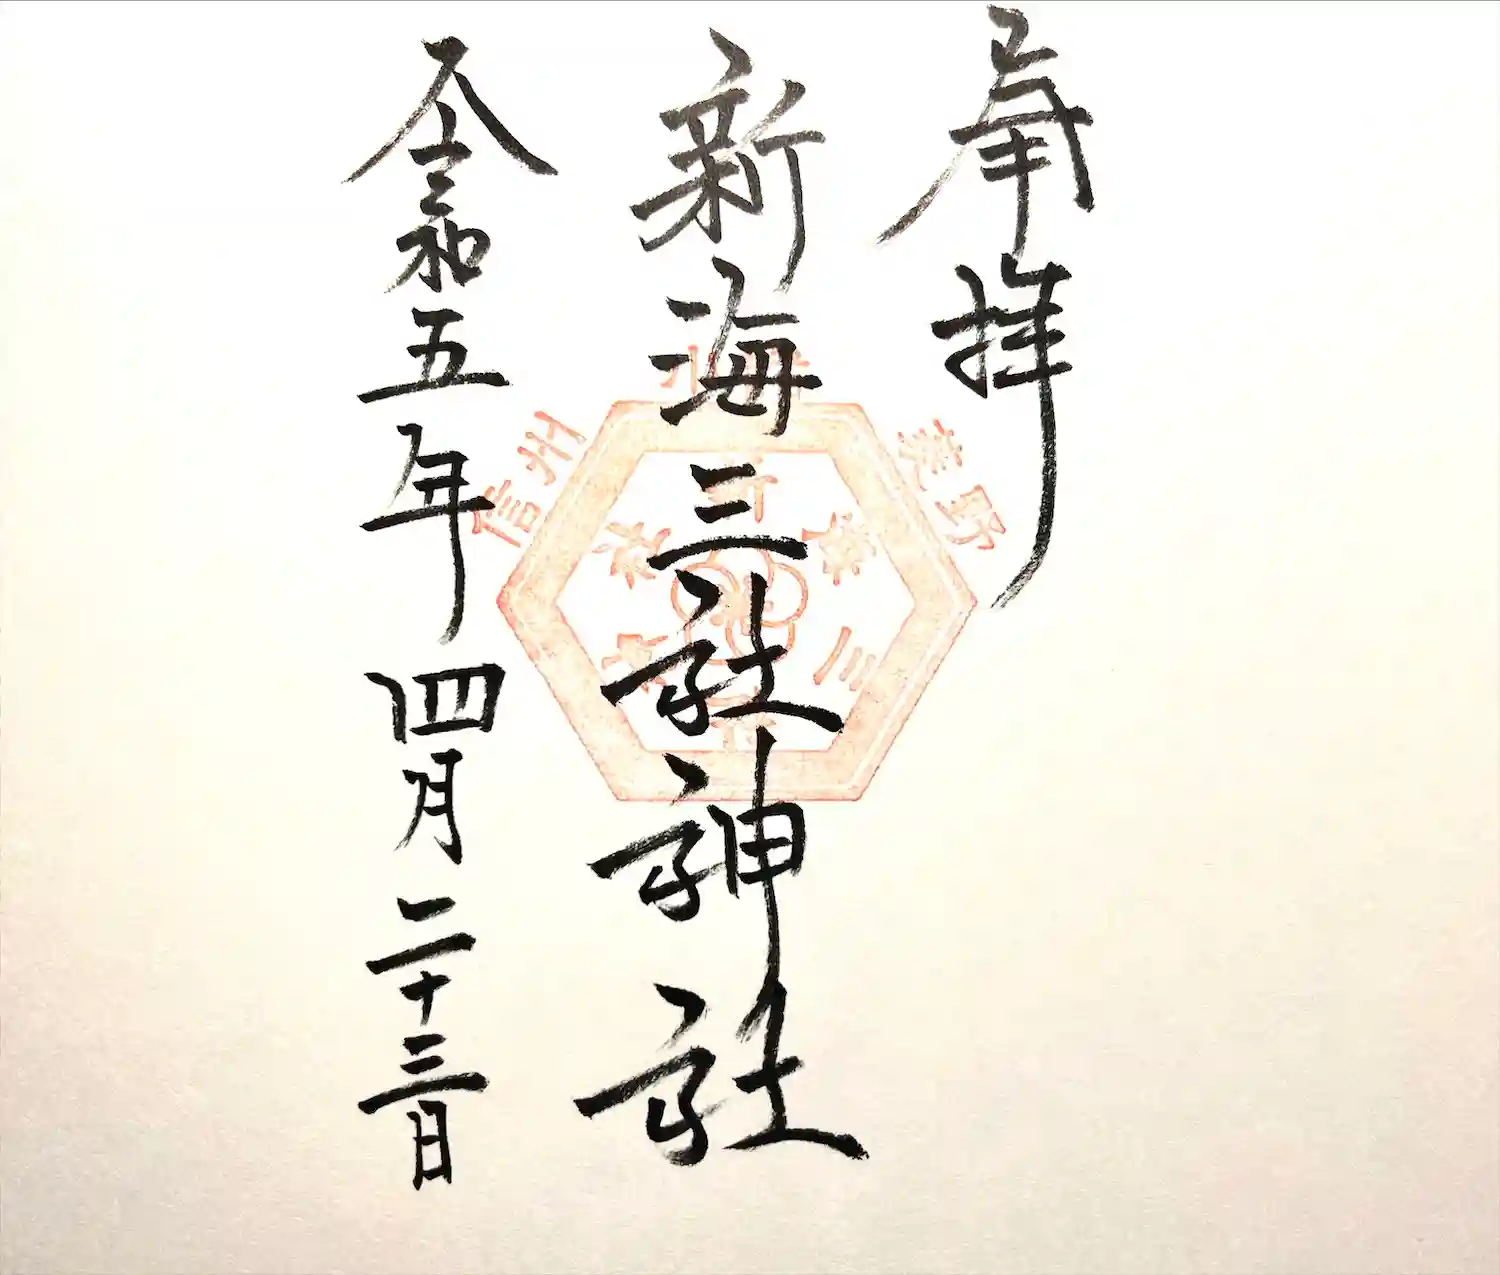 奉拝
新海三社神社
令和五年
四月二十三日
信州